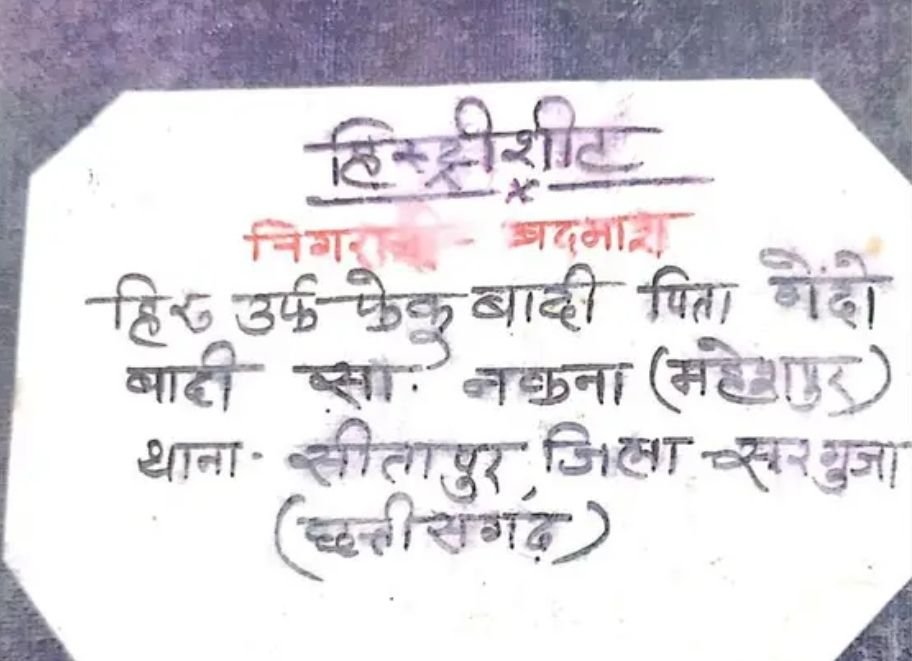 हिस्ट्रीशीट
निगरानी - बदमाश
हिरु उर्फ फेकु बादी पिता गेंदो
बादी सा. नकना (महेशपुर)
थाना. सीतापुर, जिला सरगुजा
(छत्तीसगढ़)